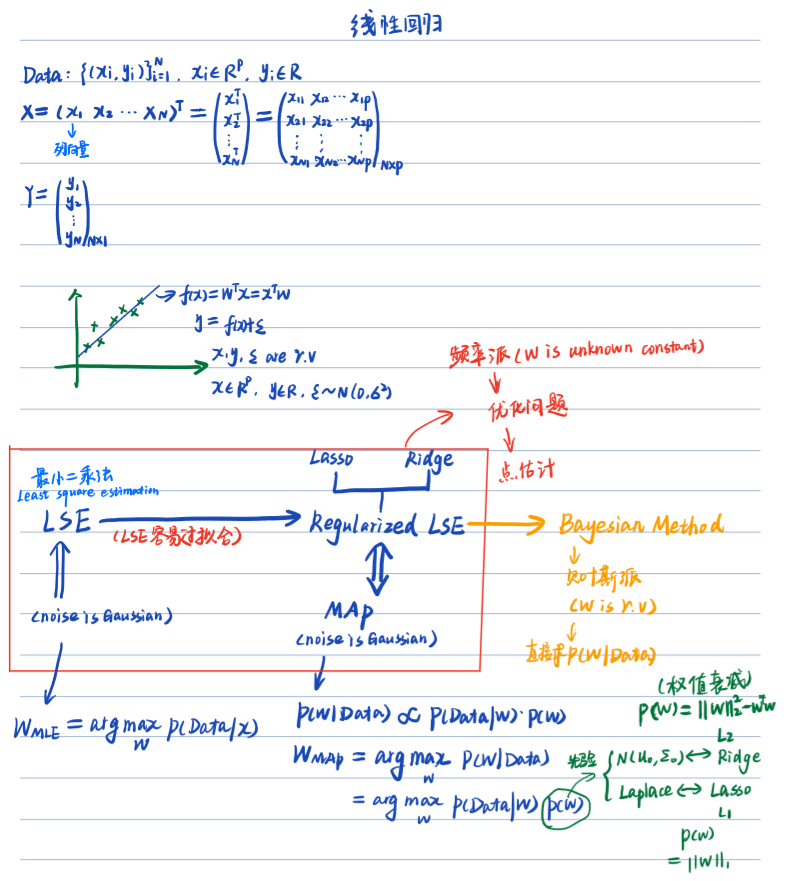 线性回归
Data: {(xi, yi)}ᴺi=1, xi∈Rᴾ, yi∈R
X = (x1 x2 ⋯ xN)ᵀ = (x1ᵀ x2ᵀ ⋮ xNᵀ) = (x11 x12 ⋯ x1p x21 x22 ⋯ x2p ⋮ ⋮ ⋮ xN1 xN2 ⋯ xNp)N×p
列向量
Y = (y1 y2 ⋮ yN)N×1
f(x)=Wᵀx=xᵀW
y = f(x)+ξ
x, y, ξ are r.v
x∈Rᴾ, y∈R, ξ~N(0,6²)
频率派 (W is unknown constant)
优化问题
点估计
最小二乘法
Least square estimation
LSE
(LSE容易过拟合)
Lasso Ridge
Regularized LSE
Bayesian Method
贝叶斯派
(W is r.v)
直接求P(W|Data)
(noise is Gaussian)
MAP
(noise is Gaussian)
WMLE = arg max P(Data|x)
W
P(W|Data) ∝ P(Data|W)·P(W)
WMAP = arg max P(W|Data)
W
= arg max P(Data|W) P(W)
W
(权值衰减)
P(W)=||W||₂²-WᵀW
L2
先验 { N(u0, Σ0) ↔ Ridge
Laplace ↔ Lasso
L1
P(W)
= ||W||1